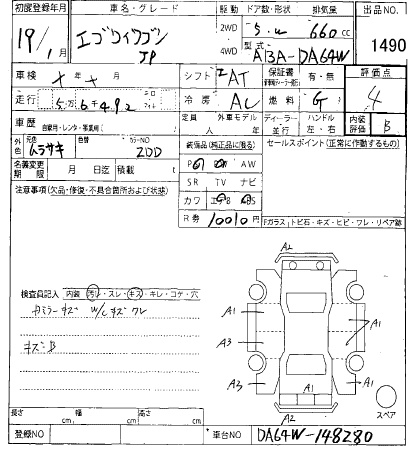 初度登録年月 車名・グレード 駆動 ドア数・形状 排気量 出品NO.
19/1月 エブリイワゴン JP 2WD 4WD 5.W 660cc 1490
型式 ABA-DA64W
車検 X年X月 シフト IAT 保証書 有・無 評価点 4
走行 冷房 AC 燃料 G
車歴 自家用・レンタ・事業用( ) 定員 人 外車モデル 年 ディーラー 並行 ハンドル 左・右 内装評価 B
外色 元色 ムラサキ 色替 カラーNO ZDD 装備品(純正品に限る) セールスポイント(正常に作動するもの)
名義変更期限 月 日迄 積載 kg PS PW AW
注意事項(欠品・修復・不具合箇所および状態) SR TV ナビ
カワ エアB ABS
R券 10010円 Fガラス,トビ石・キズ・ヒビ・ワレ・リペア跡
A2
検査員記入 内装 汚れ・スレ・キズ・キレ・コゲ・穴
カミラーキズ W/Lキズ ワレ
A1 A1
キズB A3 A1
A3 A1
A2 スペア
長さ cm 幅 cm 高さ cm
登録NO 車台NO DA64W-148280